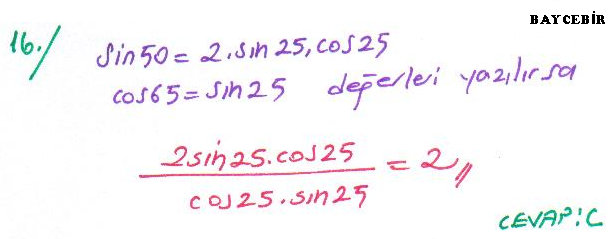 BAYCEBİR
16./ sin50 = 2.sin25.cos25
cos65 = sin25 değerleri yazılırsa
2sin25.cos25 / cos25.sin25 = 2//
CEVAP:C